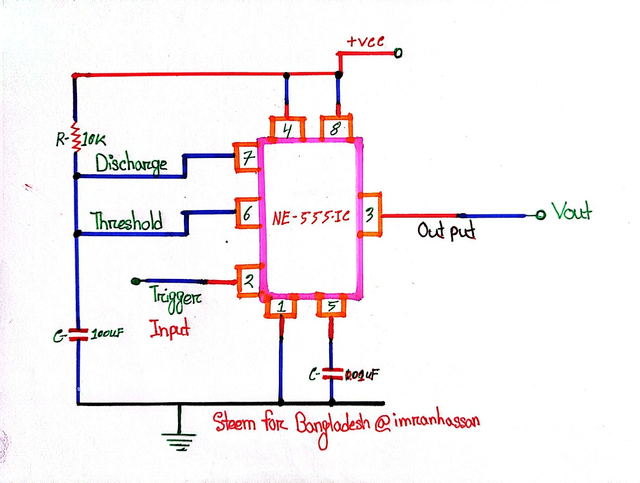 +vcc
4
8
R-
10K
7
Discharge
6
Threshold
NE-555-IC
3
Output
Vout
2
Trigger
Input
1
5
C-
100uF
C-
Steem for Bangladesh @imranhassan